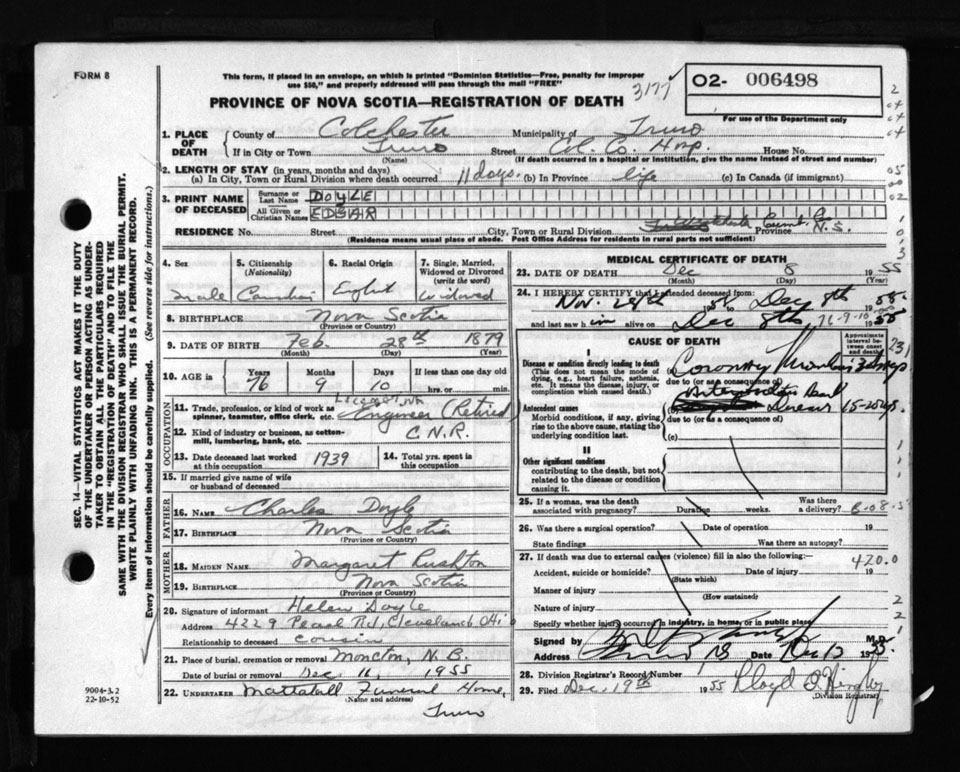 FORM 8
This form, if placed in an envelope, on which is printed "Dominion Statistics—Free, penalty for improper
use $50," and properly addressed will pass through the mail "FREE"
3177
02- 006498
For use of the Department only
PROVINCE OF NOVA SCOTIA—REGISTRATION OF DEATH
1. PLACE OF DEATH
County of Colchester Municipality of Truro
If in City or Town Truro Street Col. Co. Hosp. House No.
(Name) (If death occurred in a hospital or institution, give the name instead of street and number)
2. LENGTH OF STAY (in years, months and days)
(a) In City, Town or Rural Division where death occurred 11 days. (b) In Province life (c) In Canada (if immigrant)
3. PRINT NAME OF DECEASED
Surname or Last Name DOYLE
All Given or Christian Names EDGAR
RESIDENCE No. Street City, Town or Rural Division Cumb. Co. Province N.S.
(Residence means usual place of abode. Post Office Address for residents in rural parts not sufficient)
4. Sex
Male
5. Citizenship (Nationality)
Canadian
6. Racial Origin
English
7. Single, Married, Widowed or Divorced (write the word)
Widowed
8. BIRTHPLACE Nova Scotia
(Province or Country)
9. DATE OF BIRTH Feb. 28th 1879
(Month) (Day) (Year)
10. AGE in Years Months Days If less than one day
76 9 10 hrs. or min.
OCCUPATION
11. Trade, profession, or kind of work as spinner, teamster, office clerk, etc. Engineer (Retired)
12. Kind of industry or business, as cotton-mill, lumbering, bank, etc. C.N.R.
13. Date deceased last worked at this occupation 1939
14. Total yrs. spent in this occupation
15. If married give name of wife or husband of deceased
FATHER
16. NAME Charles Doyle
17. BIRTHPLACE Nova Scotia
(Province or Country)
MOTHER
18. MAIDEN NAME Margaret Rushton
19. BIRTHPLACE Nova Scotia
(Province or Country)
20. Signature of informant Helen Doyle
Address 4229 Pearl Rd, Cleveland Ohio
Relationship to deceased cousin
21. Place of burial, cremation or removal Moncton, N.B.
Date of burial or removal Dec. 11, 1955
22. UNDERTAKER Mattatall Funeral Home,
(Name and address)
Truro
9004-3.2
22-10-52
SEC. 14—VITAL STATISTICS ACT MAKES IT THE DUTY
OF THE UNDERTAKER OR PERSON ACTING AS UNDER-
TAKER TO OBTAIN ALL THE PARTICULARS REQUIRED
IN THE "REGISTRATION OF DEATH" AND TO FILE THE
SAME WITH THE DIVISION REGISTRAR WHO SHALL ISSUE THE BURIAL PERMIT.
WRITE PLAINLY WITH UNFADING INK. THIS IS A PERMANENT RECORD.
Every item of information should be carefully supplied. (See reverse side for instructions.)
MEDICAL CERTIFICATE OF DEATH
23. DATE OF DEATH Dec 8 1955
(Month) (Day) (Year)
24. I HEREBY CERTIFY that I attended deceased from
Nov. 28th to Dec 8th 1955
and last saw him alive on Dec 8th 1955
76-9-10
CAUSE OF DEATH
Approximate interval between onset and death
I
Disease or condition directly leading to death
(This does not mean the mode of dying, e.g., heart failure, asthenia, etc. It means the disease, injury, or complication which caused death.)
(a) Coronary Thrombosis
due to (or as a consequence of)
Antecedent causes
Morbid conditions, if any, giving rise to the above cause, stating the underlying condition last.
(b) Arteriosclerotic Heart Disease 15-20 yrs.
due to (or as a consequence of)
(c)
II
Other significant conditions
contributing to the death, but not related to the disease or condition causing it.
25. If a woman, was the death associated with pregnancy? Duration weeks. Was there a delivery?
26. Was there a surgical operation? Date of operation 19
State findings Was there an autopsy?
27. If death was due to external causes (violence) fill in also the following:—
420.0
Accident, suicide or homicide? Date of injury 19
(State which)
Manner of injury
(How sustained)
Nature of injury
Specify whether injury occurred in industry, in home, or in public place
Signed by M.D.
Address Truro NS Date Dec 13 1955
28. Division Registrar's Record Number
29. Filed Dec. 19th 1955 Lloyd
(Division Registrar)